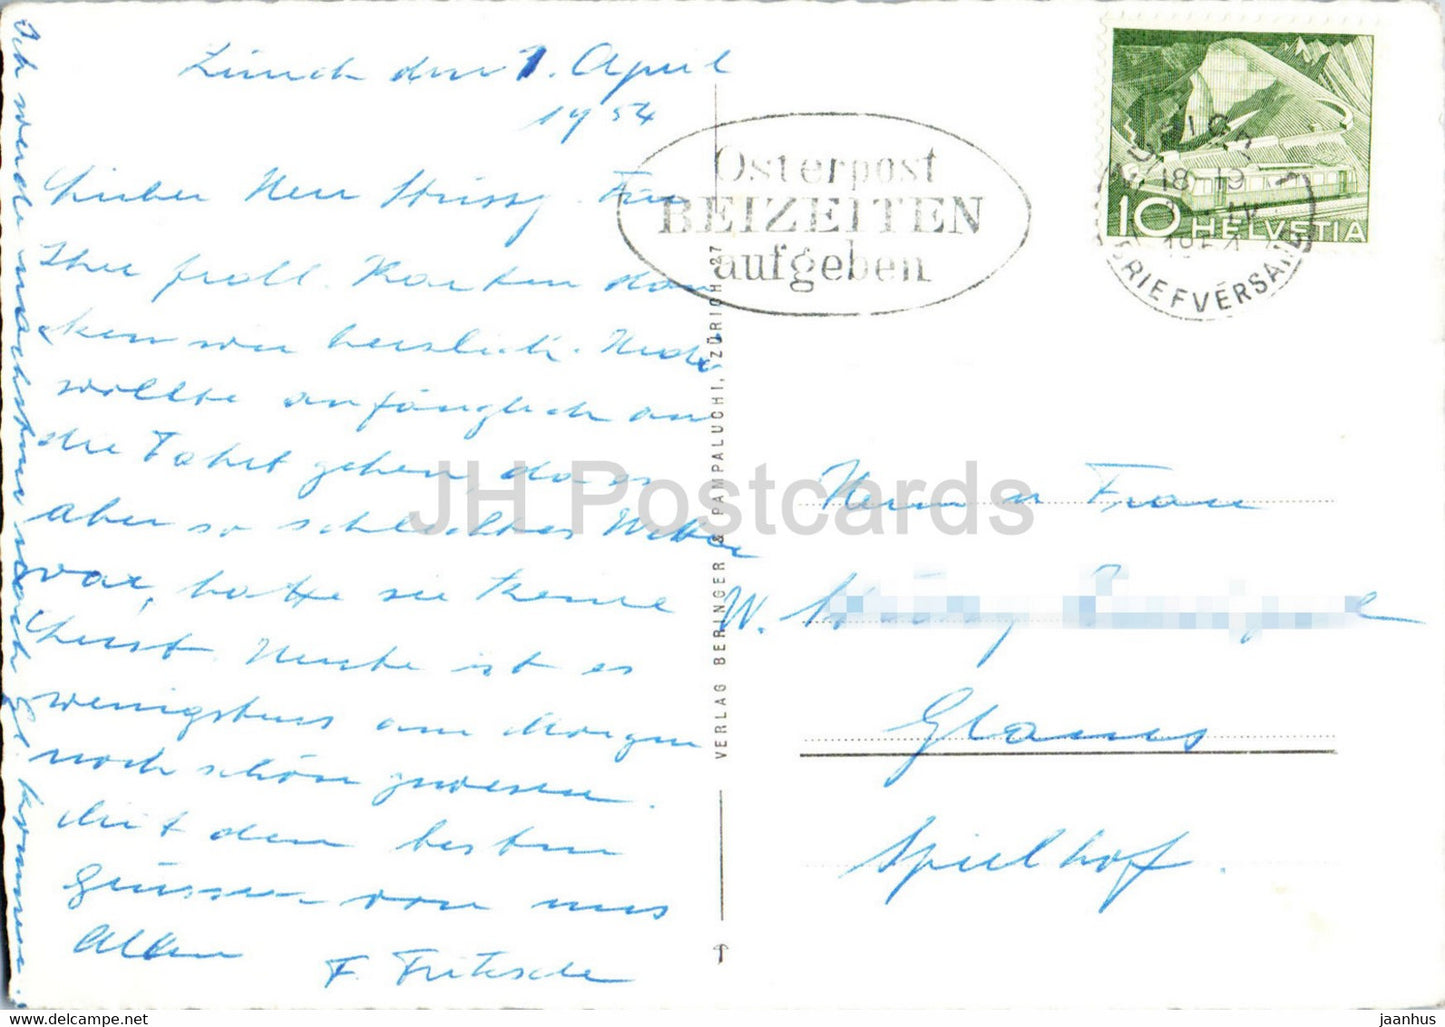 Zürich den 1. April
1954
Lieber Herr Stüssy. Für
Ihre frdl. Karten dan
ken wir herzlich.
wollte anfänglich an
die Fahrt gehen, da es
aber so schlechtes Wetter
war, hatte sie keine
Heute ist es
wenigstens am Morgen
noch schön gewesen.
Mit den besten
Grüssen von uns
Allen F. Fritzsche
Ich werde nachstens nach Gl. kommen.
Osterpost
BEIZEITEN
aufgeben
BRIEFVERSAND
18-19
1954
10 HELVETIA
VERLAG BERINGER & PAMPALUCHI, ZÜRICH 27
Herrn u Frau
W.
Glarus
Spielhof.
JH Postcards
jaanhus